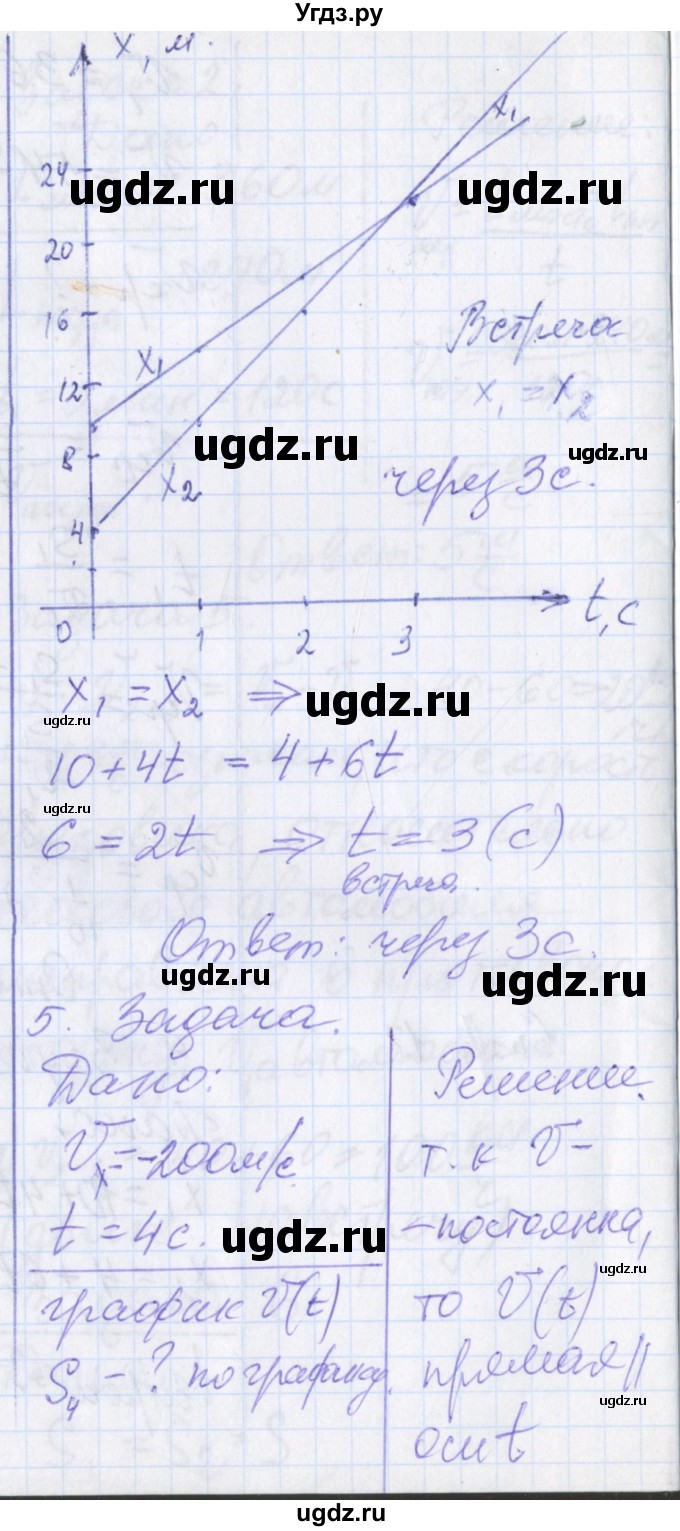 Угдз.ру
x, м.
24
ugdz.ru ugdz.ru
x₁
20
16
Встреча
x₁
x₁ = x₂
12
ugdz.ru ugdz.ru
8
x₂
через 3с.
4
0 1 2 3 t, с
x₁ = x₂ ⇒
ugdz.ru ugdz.ru
10+4t = 4+6t
ugdz.ru
6 = 2t ⇒ t = 3 (с)
встреча.
Ответ: через 3с.
ugdz.ru ugdz.ru
5. Задача.
Дано: Решение.
Vₓ=-200м/с. т.к V-
t = 4с. -постоянна,
ugdz.ru ugdz.ru
график V(t) то V(t)
S₄ - ? по графику. прямая ||
ugdz.ru
оси t
ugdz.ru